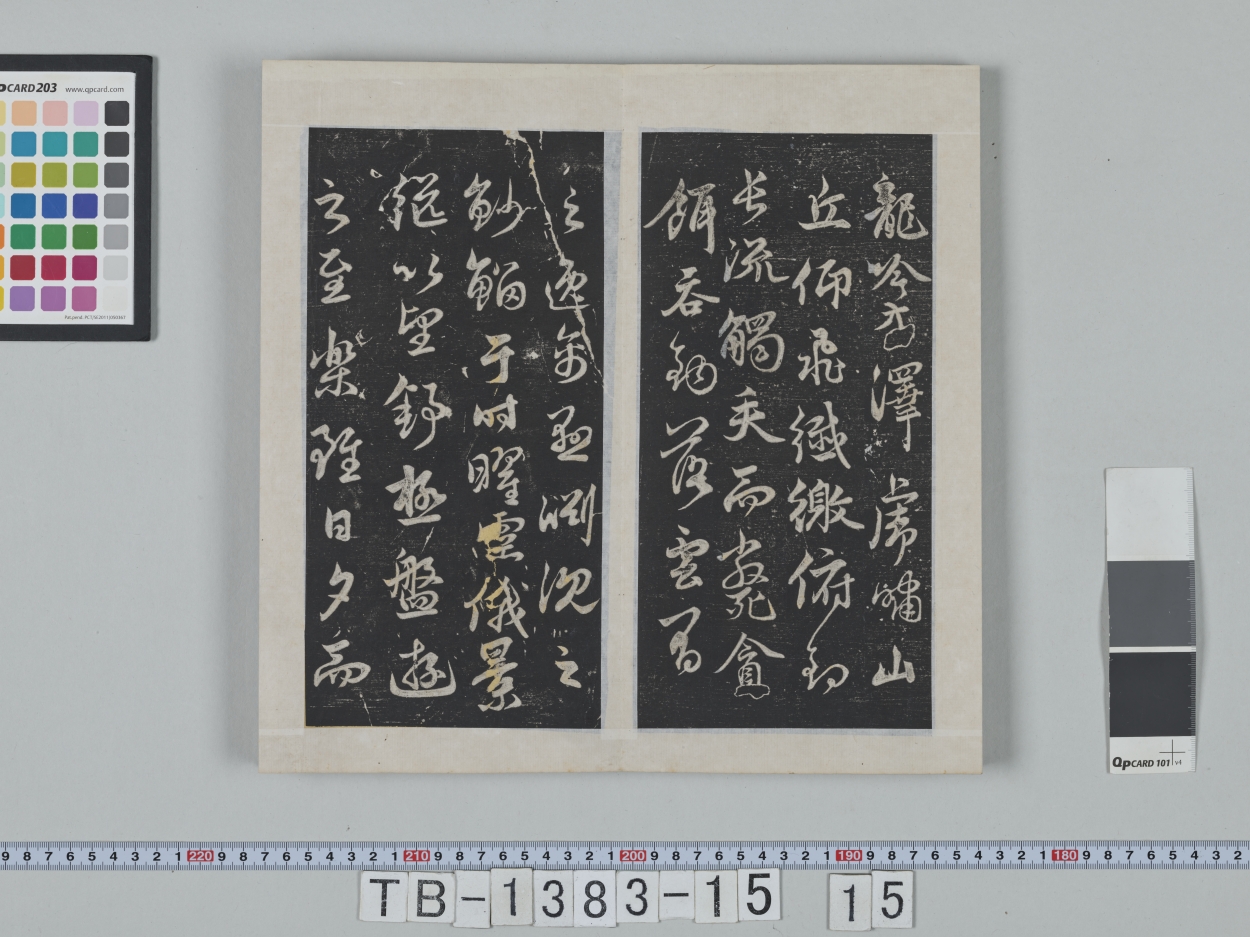 龍吟方澤虎嘯山
丘仰飛纖繳俯釣
長流觸矢而斃貪
餌吞鉤落雲間
之逸禽懸淵沉之
魦鰡于時曜靈俄景
繼以望舒極盤遊
之至樂雖日夕而
pCARD203 www.qpcard.com
QpCARD 101 v4
9 8 7 6 5 4 3 2 1 220 9 8 7 6 5 4 3 2 1 210 9 8 7 6 5 4 3 2 1 200 9 8 7 6 5 4 3 2 1 190 9 8 7 6 5 4 3 2 1 180 9 8 7 6 5 4 3 2
TB-1383-15 15